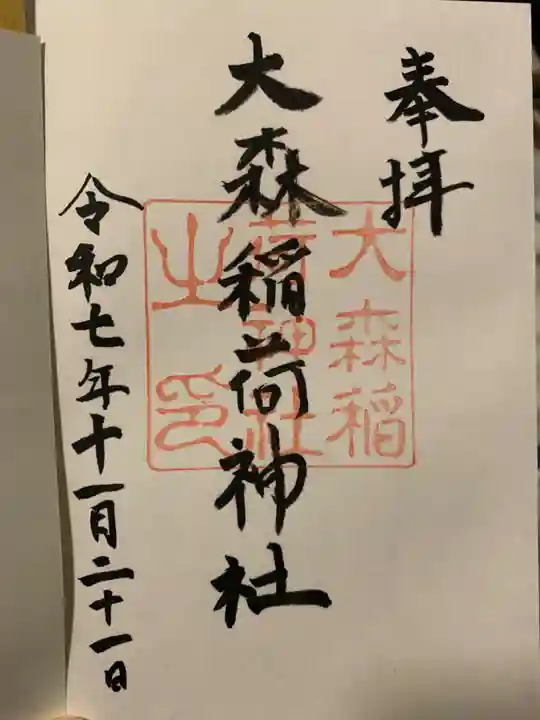 奉拝
大森稲荷神社
大森稲
荷神社
之印
令和七年十一月二十一日